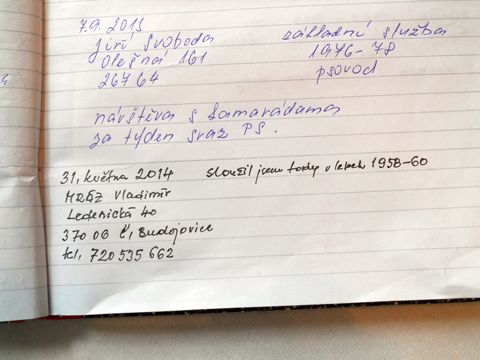 7.9. 2011
Jiří Svoboda
Olešná 161
26764
základní služba
1976-78
psovod
návštěva s kamarádama
za týden sraz PS.
31. května 2014 sloužil jsem tady v letech 1958-60
MRÁZ Vladimír
Ledenická 40
370 06 Č. Budojovice
tel. 720535662